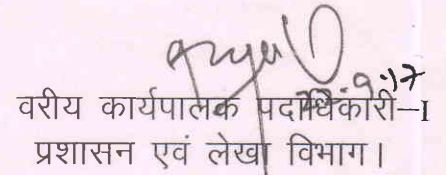 वरीय कार्यपालक पदाधिकारी–I
प्रशासन एवं लेखा विभाग।